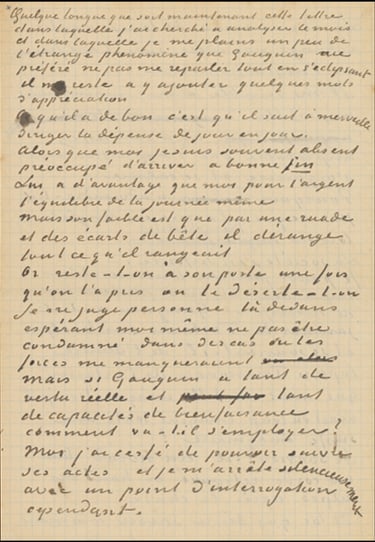 Quelque longue que soit maintenant cette lettre
dans laquelle j'ai cherché a analyser le mois
et dans laquelle je me plains un peu de
l'étrange phénomène que Gauguin aie
préféré ne pas me reparler tout en s'eclipsant
il me reste a y ajouter quelques mots
d'appréciation
Ce qu'il a de bon c'est qu'il sait à merveille
diriger la dépense de jour en jour.
Alors que moi je suis souvent absent
préoccupé d'arriver a bonne fin
Lui a d'avantage que moi pour l'argent
l'équilibre de la journée même
Mais son faible est que par une ruade
et des écarts de bête il dérange
tout ce qu'il rangeait
Or reste-t-on à son poste une fois
qu'on l'a pris ou le déserte-t-on
Je ne juge personne là dedans
espérant moi même ne pas être
condamné dans des cas ou les
forces me manqueraient
mais si Gauguin a tant de
vertu réelle et tant
de capacités de bienfaisance
comment va-t-il s'employer?
Moi j'ai cessé de pouvoir suivre
ses actes et je m'arrête silencieusement
avec un point d'interrogation
cependant.